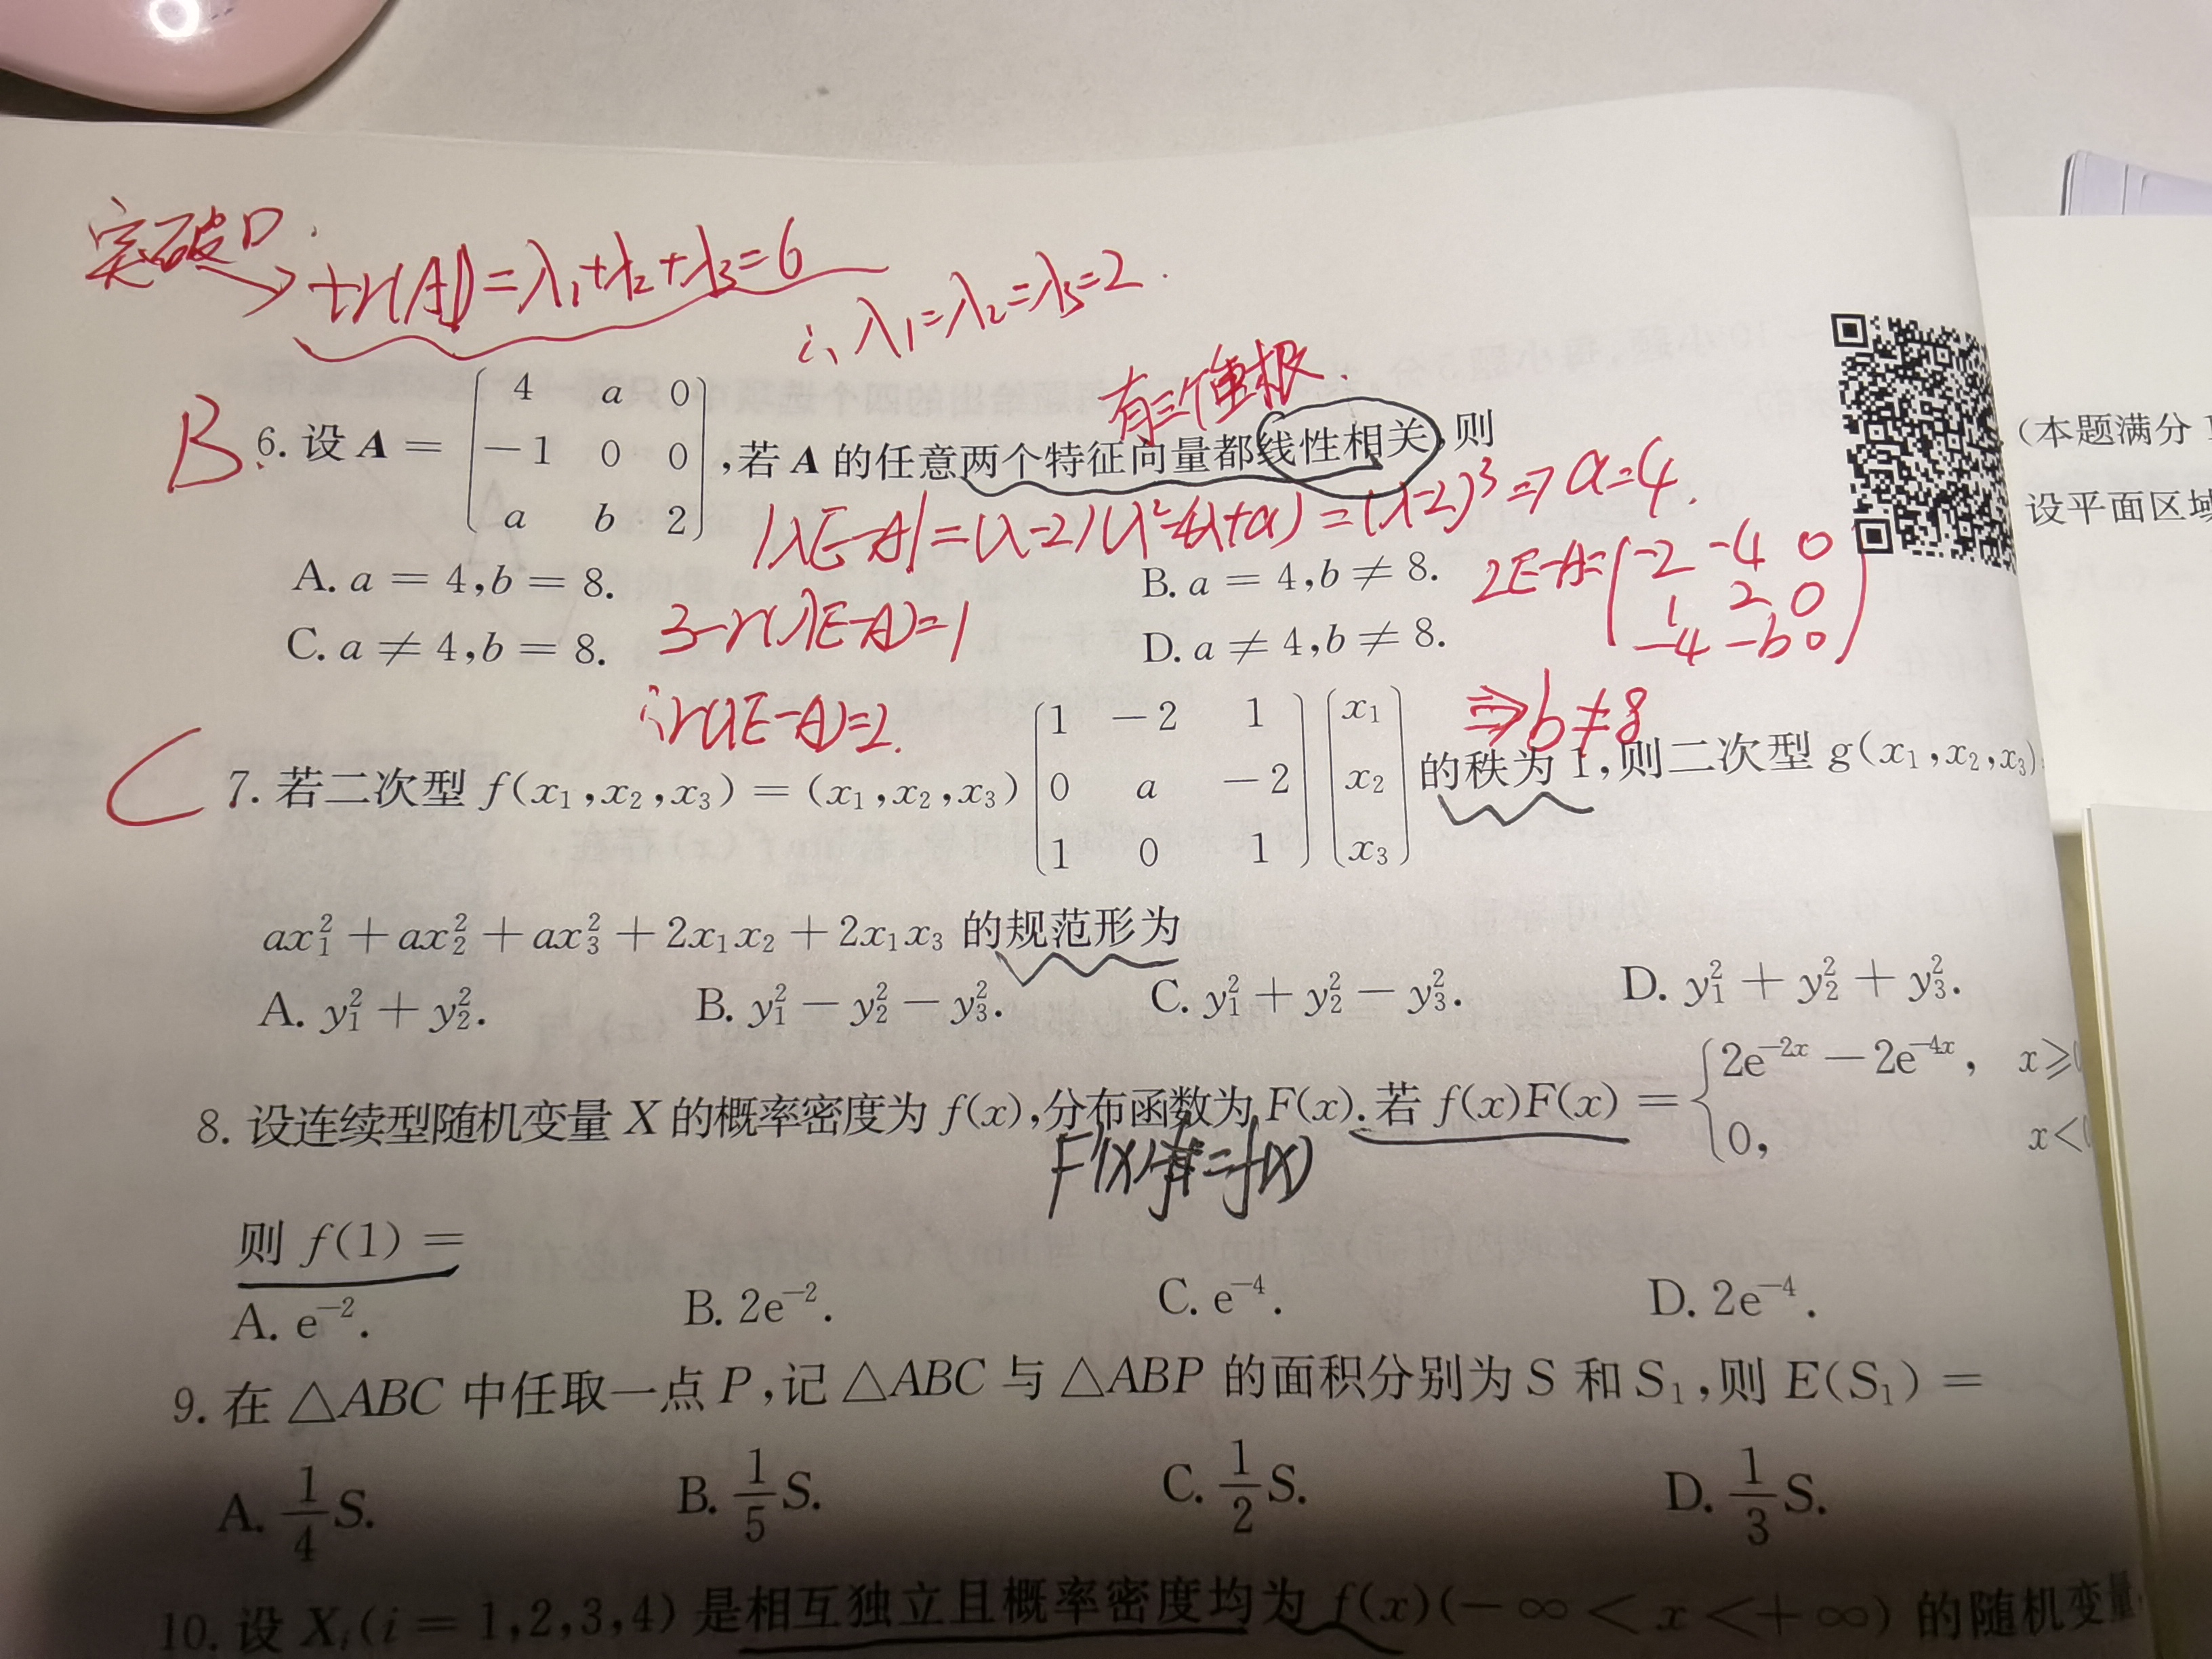 突破口.
→ tr(A)=λ₁+λ₂+λ₃=6
∴ λ₁=λ₂=λ₃=2.
有三个重根.
B. 6. 设 A = [4 a 0; -1 0 0; a b 2], 若 A 的任意两个特征向量都线性相关, 则
|λE-A|=(λ-2)(λ²-4λ+a)=(λ-2)³ ⇒ a=4.
A. a = 4, b = 8.
B. a = 4, b ≠ 8.
2E-A=(-2 -4 0; 1 2 0; -4 -b 0)
3-r(λE-A)=1
C. a ≠ 4, b = 8.
D. a ≠ 4, b ≠ 8.
∴r(λE-A)=2.
⇒b≠8
C 7. 若二次型 f(x₁,x₂,x₃) = (x₁,x₂,x₃) [1 -2 1; 0 a -2; 1 0 1] [x₁; x₂; x₃] 的秩为 1, 则二次型 g(x₁,x₂,x₃)
ax₁² + ax₂² + ax₃² + 2x₁x₂ + 2x₁x₃ 的规范形为
A. y₁² + y₂².
B. y₁² - y₂² - y₃².
C. y₁² + y₂² - y₃².
D. y₁² + y₂² + y₃².
8. 设连续型随机变量 X 的概率密度为 f(x), 分布函数为 F(x). 若 f(x)F(x) = {2e⁻²ˣ - 2e⁻⁴ˣ, x≥0
0, x<0
F'(x)=f(x)
则 f(1) =
A. e⁻².
B. 2e⁻².
C. e⁻⁴.
D. 2e⁻⁴.
9. 在 △ABC 中任取一点 P, 记 △ABC 与 △ABP 的面积分别为 S 和 S₁, 则 E(S₁) =
A. 1/4 S.
B. 1/5 S.
C. 1/2 S.
D. 1/3 S.
10. 设 Xᵢ(i = 1,2,3,4) 是相互独立且概率密度均为 f(x)(-∞ < x < +∞) 的随机变量
(本题满分 1
设平面区域